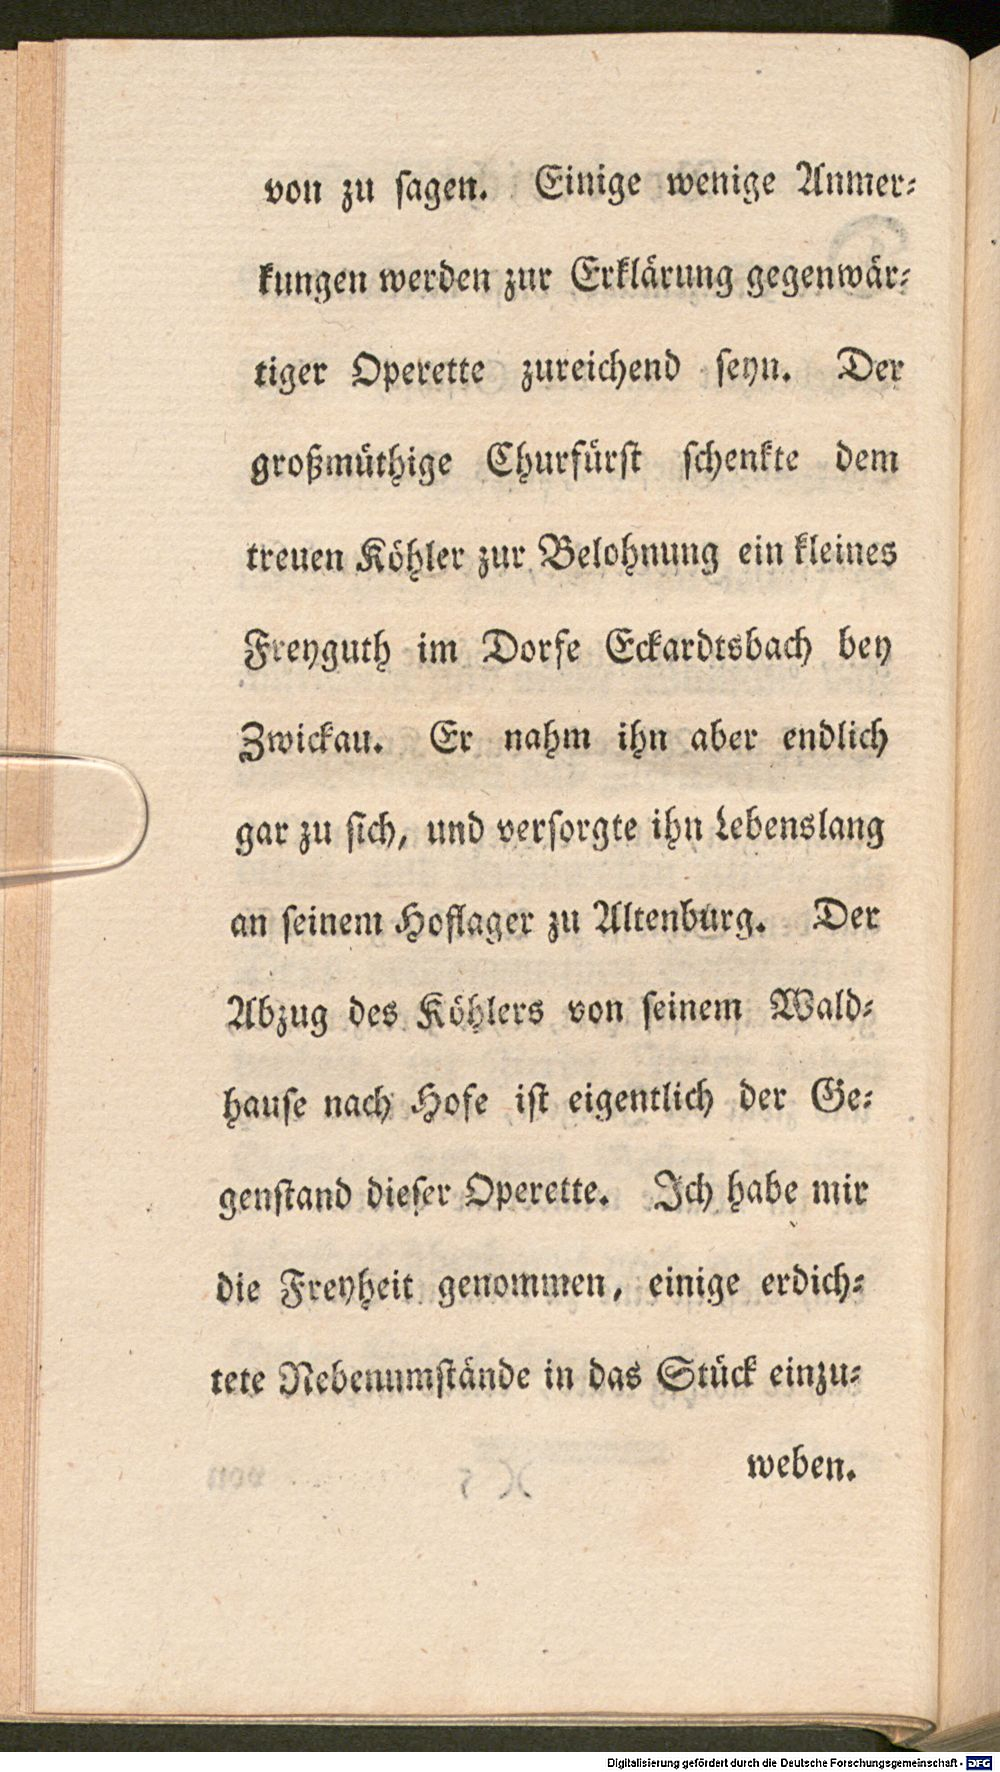 von zu sagen. Einige wenige Anmer⸗
kungen werden zur Erklärung gegenwär⸗
tiger Operette zureichend seyn. Der
großmüthige Churfürst schenkte dem
treuen Köhler zur Belohnung ein kleines
Freyguth im Dorfe Eckardtsbach bey
Zwickau. Er nahm ihn aber endlich
gar zu sich, und versorgte ihn Lebenslang
an seinem Hoflager zu Altenburg. Der
Abzug des Köhlers von seinem Wald⸗
hause nach Hofe ist eigentlich der Ge⸗
genstand dieser Operette. Ich habe mir
die Freyheit genommen, einige erdich⸗
tete Nebenumstände in das Stück einzu⸗
weben.
Digitalisierung gefördert durch die Deutsche Forschungsgemeinschaft - DFG